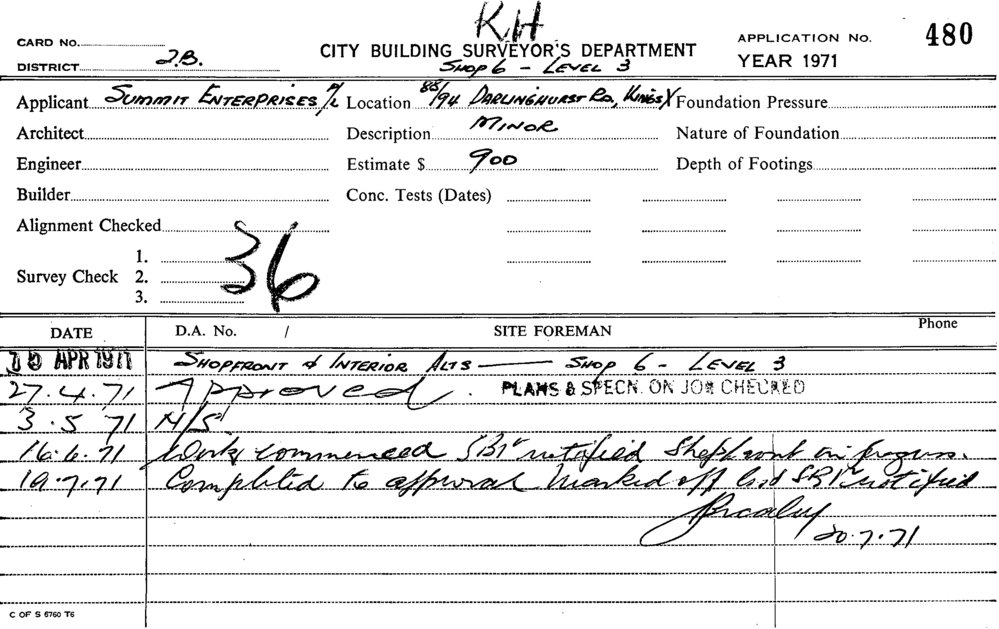 KH
CARD No. CITY BUILDING SURVEYOR'S DEPARTMENT APPLICATION No. 480
DISTRICT J.B. SHOP 6 - LEVEL 3 YEAR 1971
Applicant SUMMIT ENTERPRISES P/L Location 88/94 DARLINGHURST RD, KINGS X Foundation Pressure
Architect Description MINOR Nature of Foundation
Engineer Estimate $ 900 Depth of Footings
Builder Conc. Tests (Dates)
Alignment Checked
36
1.
Survey Check 2.
3.
DATE D.A. No. / SITE FOREMAN Phone
APR 1971 SHOPFRONT & INTERIOR ALTS - SHOP 6 - LEVEL 3
27.4.71 Approved. PLANS & SPECN. ON JOB CHECKED
3.5.71 N/S
16.6.71 Work commenced SBI notified Shopfront in progress.
19.7.71 Completed to approval Marked off SBI notified
20.7.71
C OF S 6760 T6